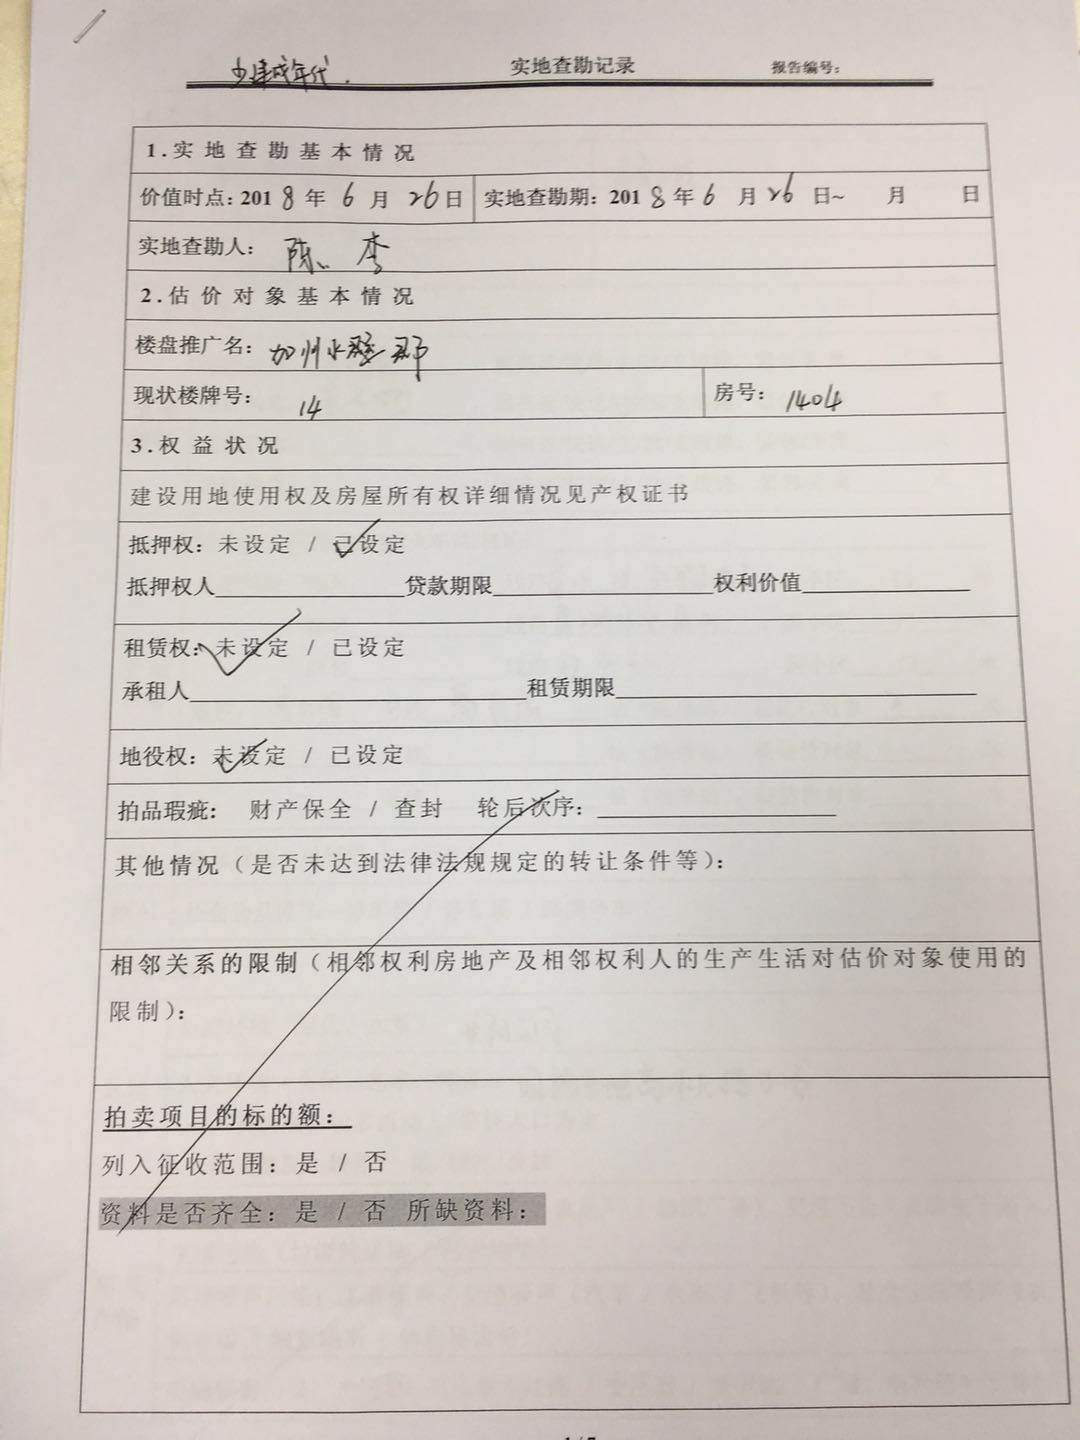 少建成年代.
实地查勘记录 报告编号:
1.实地查勘基本情况
价值时点: 2018年6月26日 实地查勘期: 2018年6月26日~ 月 日
实地查勘人: 陈、李
2.估价对象基本情况
楼盘推广名: 加州水郡
现状楼牌号: 14 房号: 1404
3.权益状况
建设用地使用权及房屋所有权详细情况见产权证书
抵押权: 未设定 / 已设定
抵押权人 贷款期限 权利价值
租赁权: 未设定 / 已设定
承租人 租赁期限
地役权: 未设定 / 已设定
拍品瑕疵: 财产保全 / 查封 轮后次序:
其他情况(是否未达到法律法规规定的转让条件等):
相邻关系的限制(相邻权利房地产及相邻权利人的生产生活对估价对象使用的
限制):
拍卖项目的标的额:
列入征收范围: 是 / 否
资料是否齐全: 是 / 否 所缺资料: